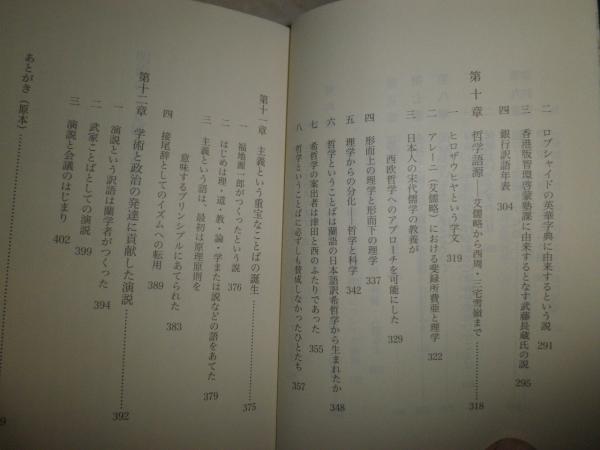 二　ロブシャイドの英華字典に由来するという説　291
三　香港版智環啓蒙塾課に由来するとなす武藤長蔵氏の説　295
四　銀行訳語年表　304
第十章　哲学語源——艾儒略から西周・三宅雪嶺まで……………318
一　ヒロザウヒヤという学文　319
二　アレーニ（艾儒略）における斐録所費亜と理学　322
三　日本人の宋代儒学の教養が
西欧哲学へのアプローチを可能にした　329
四　形而上の理学と形而下の理学　337
五　理学からの分化——哲学と科学　342
六　哲学ということばは蘭語の日本語訳希哲学から生まれたか　348
七　希哲学の案出者は津田と西のふたりであった　355
八　哲学ということばに必ずしも賛成しなかったひとたち　357
第十一章　主義という重宝なことばの誕生……………375
一　福地源一郎がつくったという説　376
二　はじめは理・道・教・論・学または説などの語をあてた　379
三　主義という語は、最初は原理原則を
意味するプリンシプルにあてられた　383
四　接尾辞としてのイズムへの転用　389
第十二章　学術と政治の発達に貢献した演説……………392
一　演説という訳語は蘭学者がつくった　394
二　武家ことばとしての演説　399
三　演説と会議のはじまり　402
あとがき（原本）……………